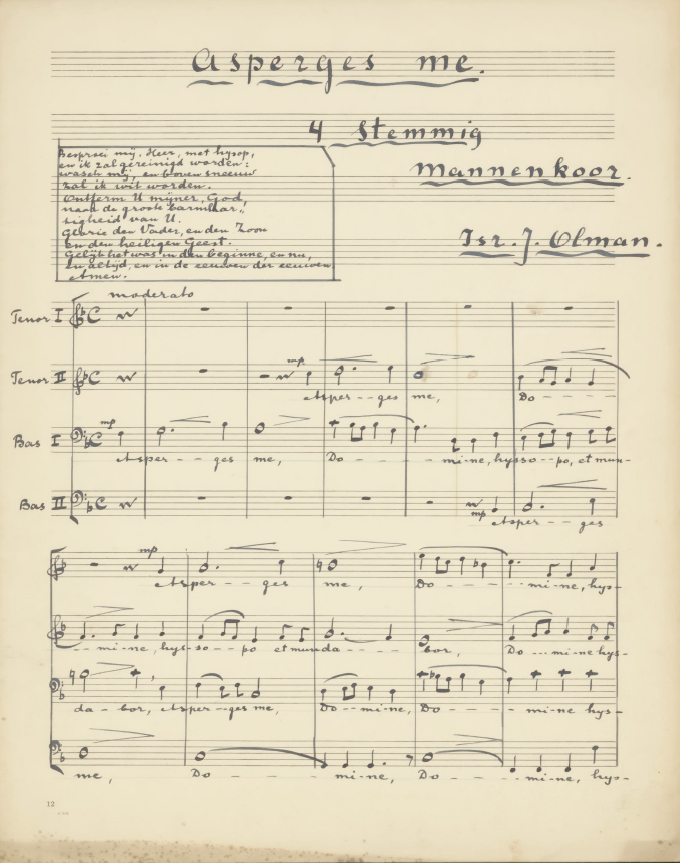 Asperges me.
4 Stemmig
Mannenkoor.
Isr. J. Olman.
Besproei mij, Heer, met hysop,
en ik zal gereinigd worden:
wasch mij, en boven sneeuw
zal ik wit worden.
Ontferm U mijner, God,
naar de groote barmhar„
tigheid van U.
Glorie den Vader, en den Zoon
en den heiligen Geest.
Gelijk het was in den beginne, en nu,
en altijd, en in de eeuwen der eeuwen
Amen.
moderato
Tenor I
Tenor II
mp
Asper--ges me, Do - - - -
Bas I
mp
Asper-- ges me, Do - - - - mi-ne, hysso-po, et mun-
Bas II
mp
Asper-- ges
mp
Asper-- ges me, Do - - - - mi-ne, hys-
-- mi-ne, hys-so--po et munda---- bor, Do --- mi-ne hys-
da-bor, Asper-ges me, Do--mi-ne, Do - - - - mi-ne hys-
me, Do - - - - mi-ne, Do - - - - mi-ne, hys-
12